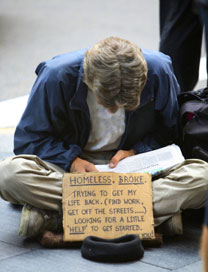 HOMELESS, BROKE
TRYING TO GET MY
LIFE BACK. (FIND WORK,
GET OFF THE STREETS....)
LOOKING FOR A LITTLE
'HELP' TO GET STARTED.